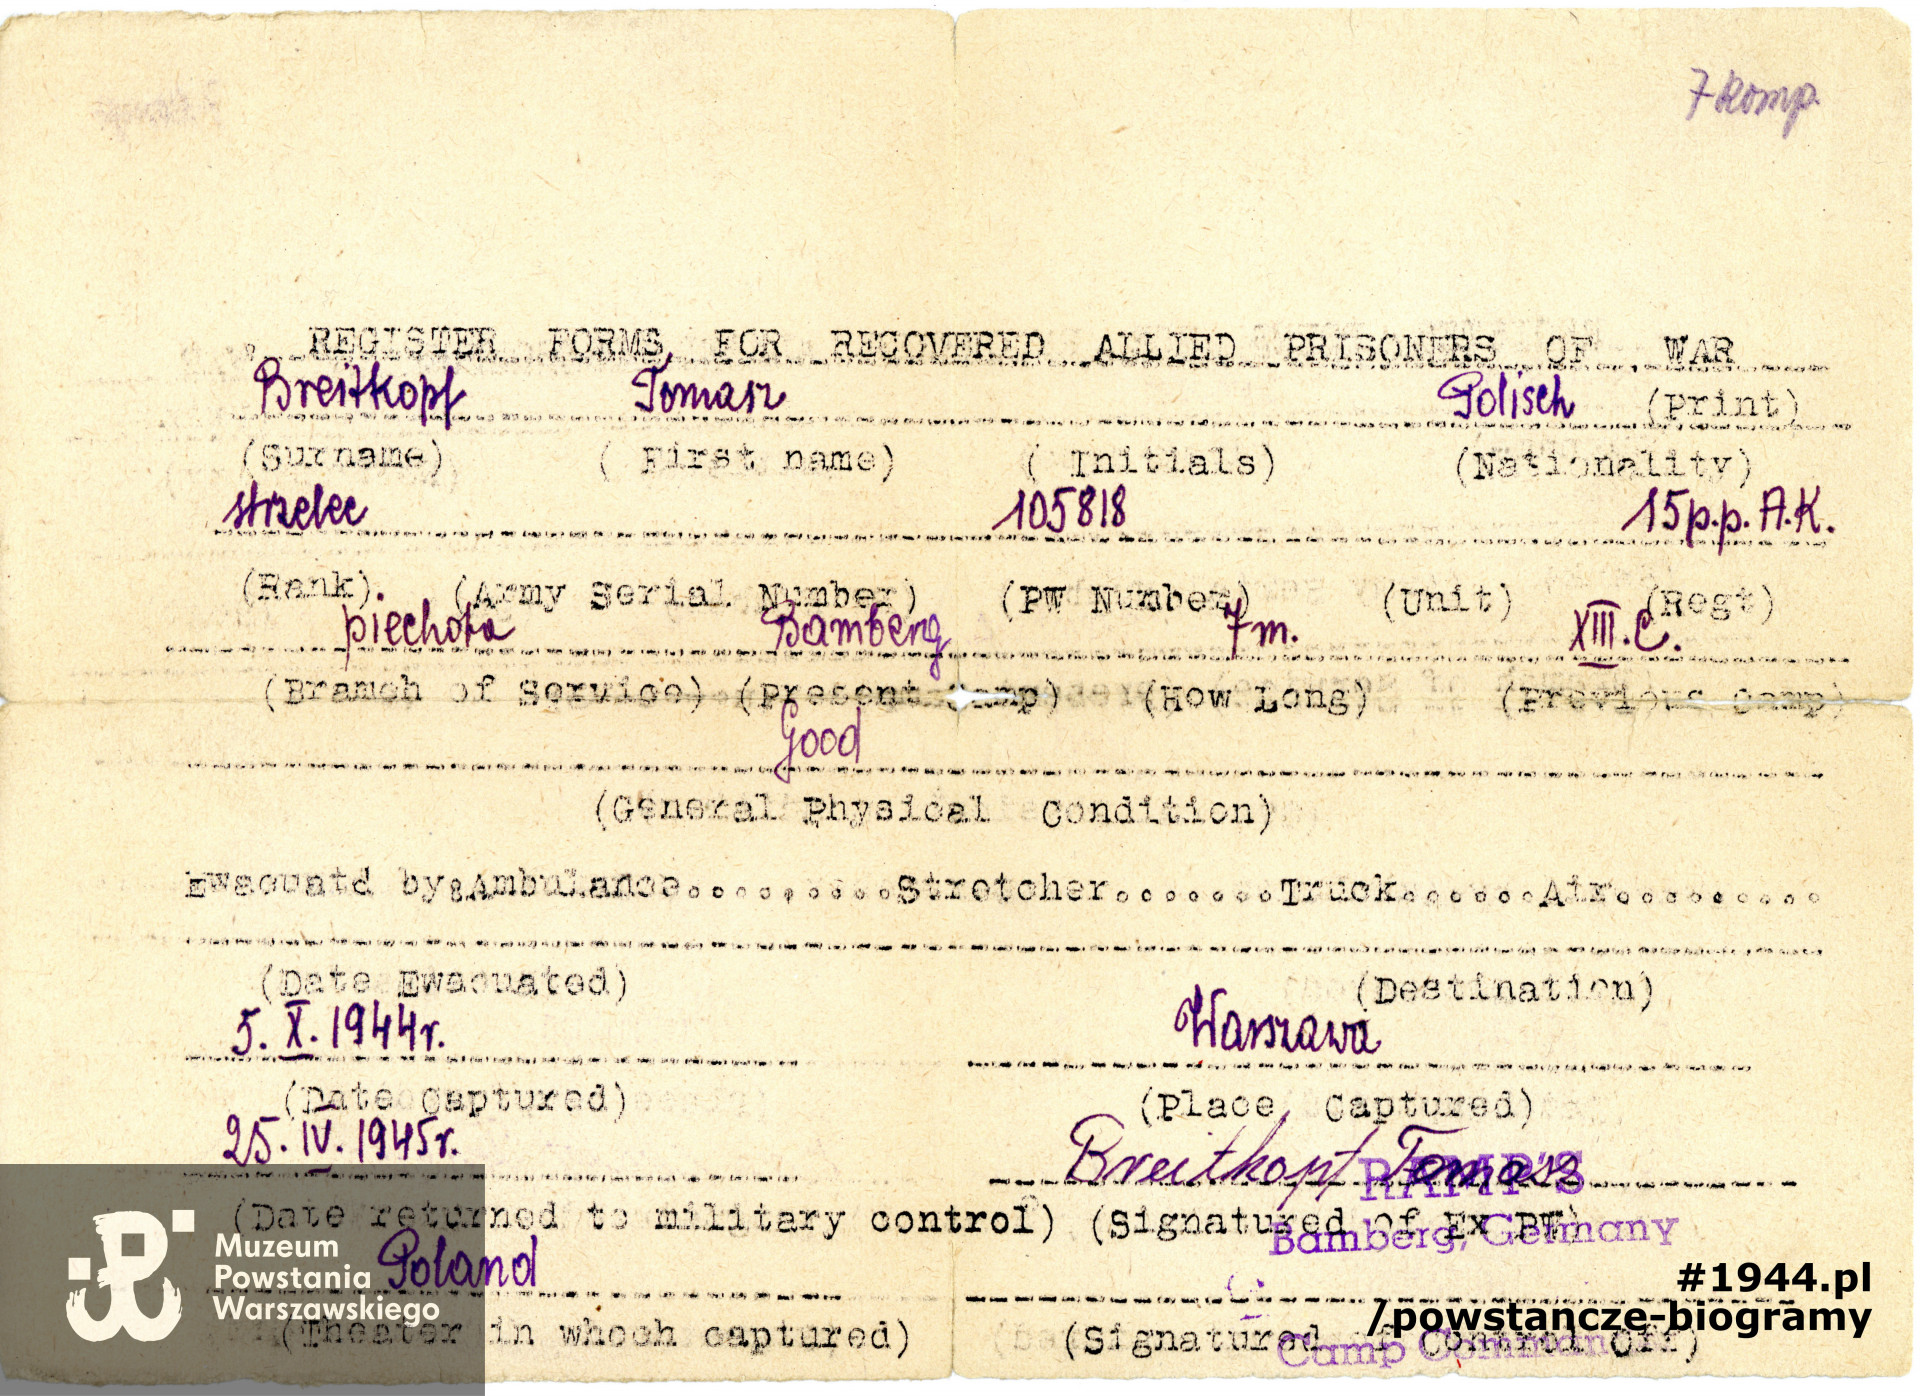 7 Komp.
REGISTER FORMS FOR RECOVERED ALLIED PRISONERS OF WAR
Breitkopf Tomasz Polisch (Print)
(Surname) ( First name) ( Initials) (Nationality)
strzelec 105818 15 p.p. A.K.
(Rank). (Army Serial Number) (PW Number) (Unit) (Regt)
piechota Bamberg 7 m. XIII.C.
(Branch of Service) (Present Camp) (How Long) (Previous Camp)
Good
(General Physical Condition)
Ewacuatd by:Ambulance..........Stretcher.......Truck......Air..........
(Date Ewacuated) (Destination)
5. X. 1944r. Warszawa
(Date Captured) (Place Captured)
25. IV. 1945r. Breitkopf Tomasz
RAMP'S
(Date returned to military control) (Signatured of Ex PW)
Bamberg, Germany
Poland
(Theater in whoch captured) (Signatured of Control Off)
Camp
Muzeum
Powstania
Warszawskiego
#1944.pl
/powstancze-biogramy